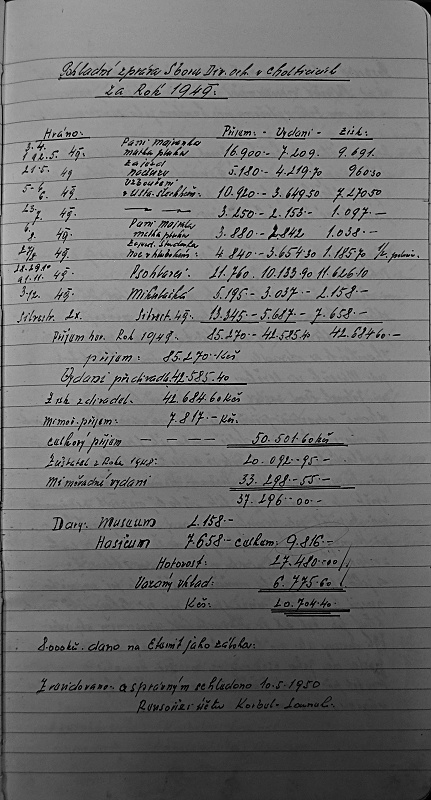 Pokladní zpráva Sboru Div. och. v Cholticích
za Rok 1949.
Hráno: Příjem: - Vydání - zisk: -
3.4. 1 a 2.5. 49. Paní majorka matka pluku 16.900 - 7.209. 9.691.
21.5. 49 5.180 - 4.219.70 960 30
5-6. 6. 49. 10.920 - 3.649.50 7.270 50
23. 7. — — 3.250 - 2.153 - 1.097 -
6. 8. 49. Paní majorka matka pluku 3.880 - 2.842 1.038 -
27/8 49. 4.840 - 3.654 30 1.185 70
49. Psohlavci. 21.760. 10.133.90 11.626 10
3/12. 49. Mikulášská 5.195 - 3.037 - 2.158 -
Silvestr. Silvest. 49. 13.345 - 5.687 - 7.658 -
Příjem Rok 1949. 85.270 - 42.585 40 42.684 60 -
příjem: 85.270 - Kčs
Vydání při divadle 42.585.40
Zisk z divadel. 42.684.60 Kčs
Mimoř. příjem: 7.817 - Kčs.
celkový příjem — — — — 50.501.60 Kčs
Zůstatek z Roku 1948: 20.092 - 95 -
Mimořádné vydání 33.298 - 55 -
37.296 - 00 -
Dary: Museum 2.158 -
Hasičum 7.658 - celkem: 9.816 -
Hotovost: 27.480 - 00
Vázaný vklad: 6.775 - 60
Kčs: 20.704.40 -
8.000 Kčs. dáno na Eternit jako záloha.
Zrevidováno a správným schledáno 10.5.1950
Revisoři účtů